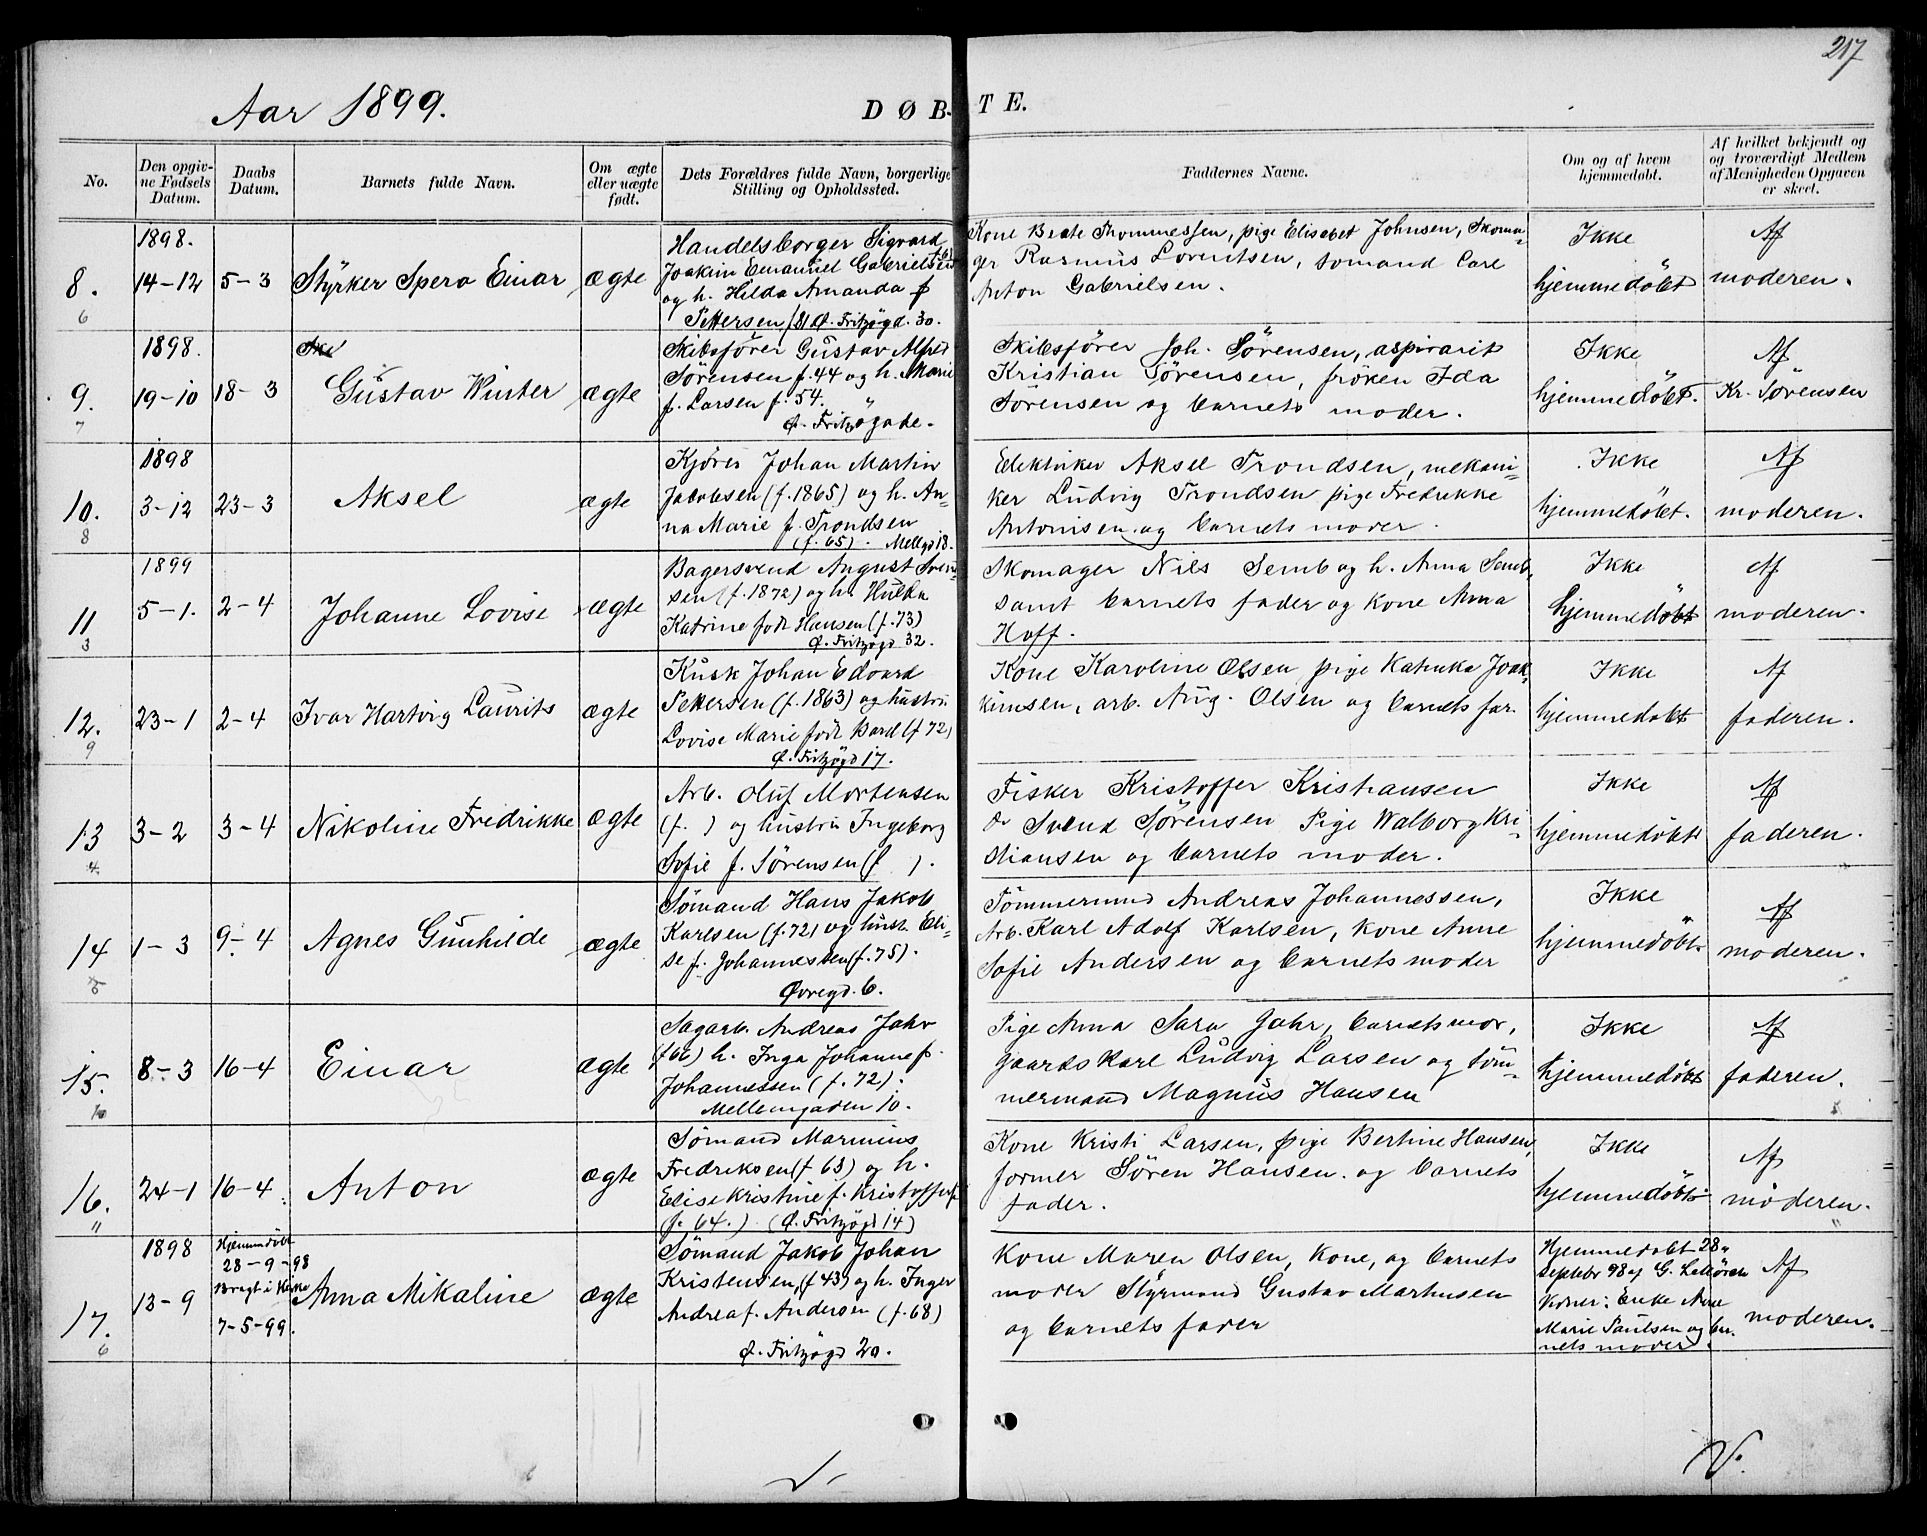 217
Aar 1899.
DØBTE.
No.
Den opgivne Fødsels Datum.
Daabs Datum.
Barnets fulde Navn.
Om ægte eller uægte født.
Dets Forældres fulde Navn, borgerlige Stilling og Opholdssted.
Faddernes Navne.
Om og af hvem hjemmedøbt.
Af hvilket bekjendt og og troværdigt Medlem af Menigheden Opgaven er skeet.
8.
6
1898.
14-12
5-3
Styrker Spero Einar
ægte
Handelsborger Sigvard
Joakim Emanuel Gabrielsen
og h. Hilda Amanda f
Pettersen Ø. Fritzøgd. 30.
Kone Beate Thommessen, pige Elisabet Johnsen, Skoma-
ger Rasmus Lorentsen, sømand Carl
Anton Gabrielsen.
Ikke
hjemmedøbt
Af
moderen.
9.
7
1898.
19-10
18-3
Gustav Winter
ægte
Skibsfører Gustav Alfred
Sørensen f. 44 og h. Marie
f. Larsen f. 54.
Ø. Fritzøgade.
Skibsfører Joh. Sørensen, aspirant
Kristian Sørensen, frøken Ida
Sørensen og barnets moder.
Ikke
hjemmedøbt.
Af
Kr. Sørensen
10.
8
1898
3-12
23-3
Aksel
ægte
Kjører Johan Martin
Jakobsen (f. 1865) og h. An-
na Marie f. Trondsen
(f. 65). Mellgd 18.
Elektriker Aksel Trondsen, mekani-
ker Ludvig Trondsen pige Fredrikke
Antonisen og barnets moder.
Ikke
hjemmedøbt.
Af
moderen.
11
3
1899
5-1.
2-4
Johanne Lovise
ægte
Bagersvend August Sven-
sen (f. 1872) og h. Hulda
Katrine født Hansen (f. 73)
Ø. Fritzøgd 32.
Skomager Nils Semb og h. Anna Semb,
samt barnets fader og Kone Anna
Hoff.
Ikke
hjemmedøbt
Af
moderen.
12.
9
23-1
2-4
Ivar Hartvig Laurits
ægte
Kusk Johan Edvard
Pettersen (f. 1863) og hustru
Lovise Marie født Bard (f 72)
Ø. Fritzøgd 17.
Kone Karoline Olsen pige Katinka Joak-
kimsen, arb. Aug. Olsen og barnets far.
Ikke
hjemmedøbt
Af
faderen.
13
4
3-2
3-4
Nikoline Fredrikke
ægte
Arb. Oluf Mortensen
(f. ) og hustru Ingeborg
Sofie f. Sørensen (f ).
Fisker Kristoffer Kristiansen
do Svend Sørensen Pige Walborg Kri-
stiansen og barnets moder.
Ikke
hjemmedøbt
Af
faderen.
14
5
1-3
9-4
Agnes Gunhilde
ægte
Sømand Hans Jakob
Karlsen (f. 72) og hust. Eli-
se f. Johannessen (f. 75).
Øvregd. 6.
Tømmermand Andreas Johannessen,
Arb. Karl Adolf Karlsen, Kone Anne
Sofie Andersen og barnets moder
Ikke
hjemmedøbt
Af
moderen.
15.
10
8-3
16-4
Einar
ægte
Sagarb. Andreas Jahr
(f 66) h. Inga Johanne f.
Johannessen (f. 72).
Mellemgaden 10.
Pige Anna Sara Jahr, barnets mor,
gaardskarl Ludvig Larsen og tøm-
mermand Magnus Hansen
Ikke
hjemmedøbt
Af
faderen.
16.
11
24-1
16-4
Anton
ægte
Sømand Marinius
Fredriksen (f. 63) og h.
Elise Kristine f. Kristoffer
(f. 64.) (Ø. Fritzøgd 14)
Kone Kristi Larsen, pige Bertine Hansen,
former Søren Hansen. og barnets
fader.
Ikke
hjemmedøbt
Af
moderen.
17.
6
1898
13-9
Hjemmedøbt
28-9-98
Bragt i Kirke
7-5-99.
Anna Mikaline
ægte
Sømand Jakob Johan
Kristensen, (f 43) og h. Inger
Andrea f. Andersen (f. 68)
Ø. Fritzøgd 20.
Kone Maren Olsen, Kone, og barnets
moder Styrmand Gustav Marhusen
og barnets fader
Hjemmedøbt 28
Septebr 98 af G.
Vidner: Enke Anne
Marie Paulsen og bar-
nets moder.
Af
moderen.